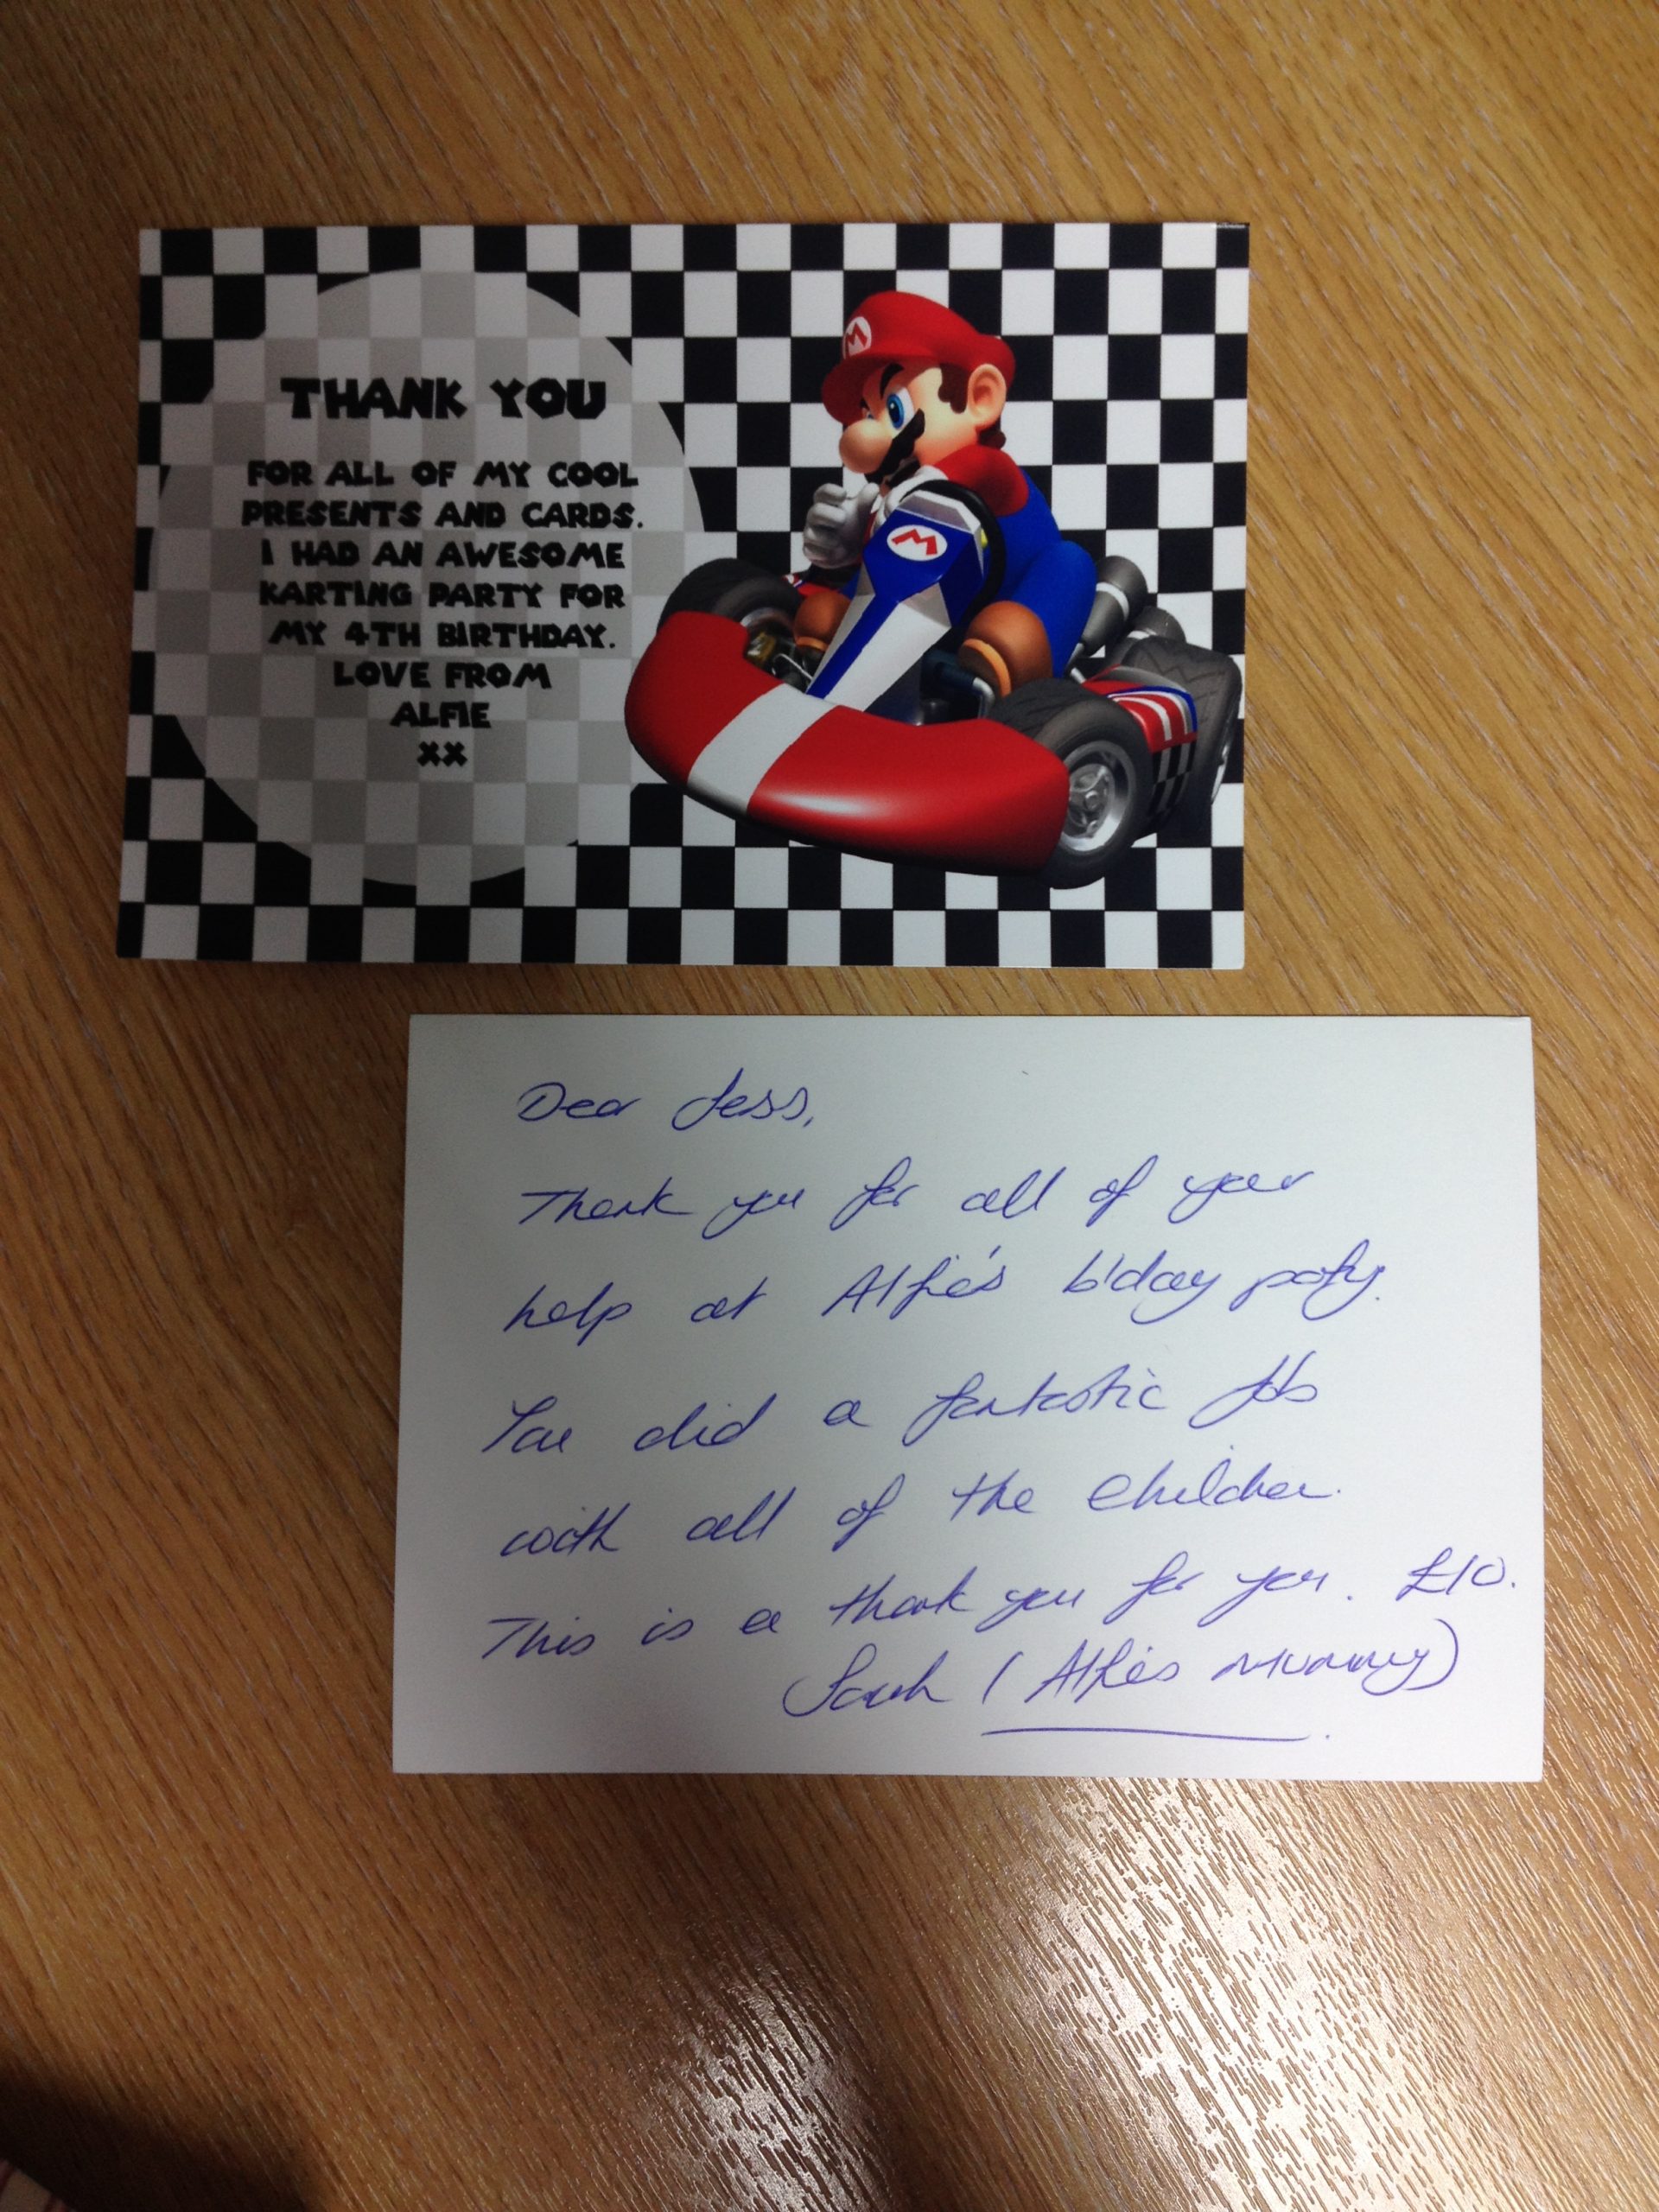 THANK YOU
FOR ALL OF MY COOL
PRESENTS AND CARDS.
I HAD AN AWESOME
KARTING PARTY FOR
MY 4TH BIRTHDAY.
LOVE FROM
ALFIE
XX
M
M
Dear Jess,
Thank you for all of your
help at Alfie's b'day party.
You did a fantastic job
with all of the children.
This is a thank you for you. £10.
Sarah (Alfie's Mummy)